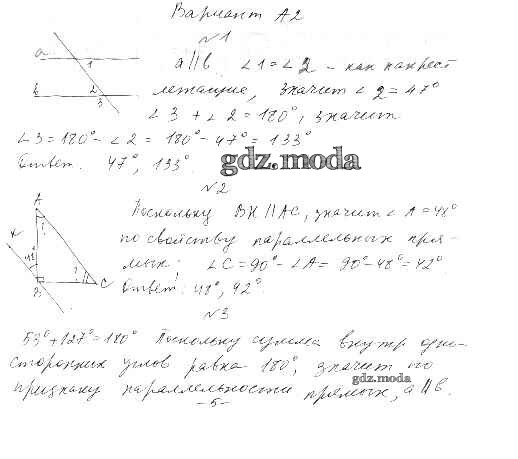 Вариант А2
№1
a
1
a||b ∠1=∠2 – как накрест
b
2
3
лежащие, значит ∠2=47°
∠3+∠2=180°, значит
∠3=180°-∠2=180°-47°=133°
Ответ: 47°, 133°.
gdz.moda
№2
A
Поскольку BK||AC, значит ∠A=48°
K
?
по свойству параллельных пря-
48°
?
мых. ∠C=90°-∠A=90°-48°=42°
B
C
Ответ: 48°, 42°.
№3
53°+127°=180° Поскольку сумма внутр. одно-
сторонних углов равна 180°, значит по
gdz.moda
признаку параллельности прямых, a||b.
-5-